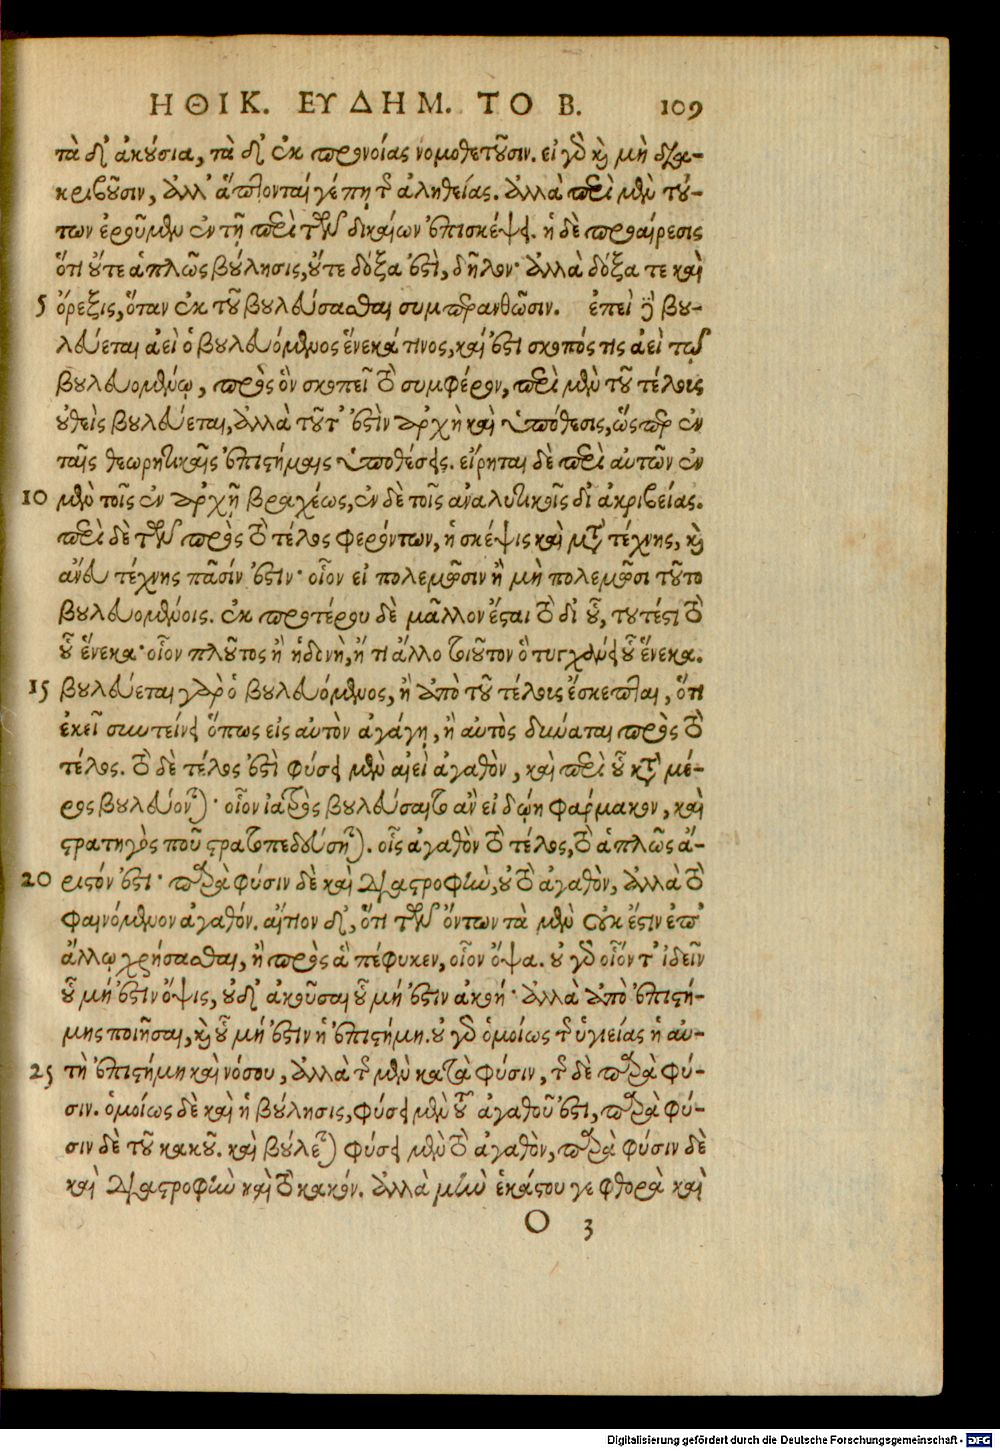 ΗΘΙΚ. ΕΥΔΗΜ. ΤΟ Β. 109
τὰ δ' ἀκούσια, τὰ δ' ἐκ προνοίας νομοθετοῦσιν. εἰ γὰρ καὶ μὴ δια-
κριβοῦσιν, ἀλλ' ἅπτονταί γέ πῃ τῆς ἀληθείας. ἀλλὰ περὶ μὲν τού-
των ἐροῦμεν ἐν τῇ περὶ τῶν δικαίων ἐπισκέψει. ἡ δὲ προαίρεσις
ὅτι οὔτε ἁπλῶς βούλησις, οὔτε δόξα ἐστὶ, δῆλον· ἀλλὰ δόξα τε καὶ
5 ὄρεξις, ὅταν ἐκ τοῦ βουλεύσασθαι συμπερανθῶσιν. ἐπεὶ δὲ βου-
λεύεται ἀεὶ ὁ βουλευόμενος ἕνεκά τινος, καί ἐστι σκοπός τις ἀεὶ τῷ
βουλευομένῳ, πρὸς ὃν σκοπεῖ τὸ συμφέρον, περὶ μὲν τοῦ τέλους
οὐθεὶς βουλεύεται, ἀλλὰ τοῦτ' ἐστὶν ἀρχὴ καὶ ὑπόθεσις, ὥσπερ ἐν
ταῖς θεωρητικαῖς ἐπιστήμαις ὑποθέσεις. εἴρηται δὲ περὶ αὐτῶν ἐν
10 μὲν τοῖς ἐν ἀρχῇ βραχέως, ἐν δὲ τοῖς ἀναλυτικοῖς δι' ἀκριβείας.
περὶ δὲ τῶν πρὸς τὸ τέλος φερόντων, ἡ σκέψις καὶ μετὰ τέχνης, καὶ
ἄνευ τέχνης πᾶσίν ἐστιν· οἷον εἰ πολεμῶσιν ἢ μὴ πολεμῶσι τοῦτο
βουλευομένοις. ἐκ προτέρου δὲ μᾶλλον ἔσται τὸ δι' οὗ, τουτέστι τὸ
οὗ ἕνεκα· οἷον πλοῦτος ἢ ἡδονὴ, ἤ τι ἄλλο τοιοῦτον ὃ τυγχάνει οὗ ἕνεκα.
15 βουλεύεται γὰρ ὁ βουλευόμενος, ἢ ἀπὸ τοῦ τέλους ἔσκεπται, ὅτι
ἐκεῖ συντείνει ὅπως εἰς αὐτὸν ἀγάγῃ, ἢ αὐτὸς δύναται πρὸς τὸ
τέλος. τὸ δὲ τέλος ἐστὶ φύσει μὲν αἰεὶ ἀγαθὸν, καὶ περὶ οὗ κατὰ μέ-
ρος βουλεύονται· οἷον ἰατρὸς βουλεύσαιτο ἂν εἰ δῴη φάρμακον, καὶ
στρατηγὸς ποῦ στρατοπεδεύσηται. οἷς ἀγαθὸν τὸ τέλος, τὸ ἁπλῶς ἄ-
20 ριστόν ἐστι· παρὰ φύσιν δὲ καὶ διαστροφὴν, οὐ τὸ ἀγαθὸν, ἀλλὰ τὸ
φαινόμενον ἀγαθόν. αἴτιον δ', ὅτι τῶν ὄντων τὰ μὲν οὐκ ἔστιν ἐπ'
ἄλλῳ χρήσασθαι, ἢ πρὸς ἃ πέφυκεν, οἷον ὄψα. οὐ γὰρ οἷόν τ' ἰδεῖν
οὗ μή ἐστιν ὄψις, οὐδ' ἀκοῦσαι οὗ μή ἐστιν ἀκοή· ἀλλὰ ἀπὸ ἐπιστή-
μης ποιῆσαι, καὶ οὗ μή ἐστιν ἡ ἐπιστήμη. οὐ γὰρ ὁμοίως τῆς ὑγιείας ἡ αὐ-
25 τὴ ἐπιστήμη καὶ νόσου, ἀλλὰ τῆς μὲν κατὰ φύσιν, τῆς δὲ παρὰ φύ-
σιν. ὁμοίως δὲ καὶ ἡ βούλησις, φύσει μὲν τοῦ ἀγαθοῦ ἐστι, παρὰ φύ-
σιν δὲ τοῦ κακοῦ. καὶ βούλεται φύσει μὲν τὸ ἀγαθὸν, παρὰ φύσιν δὲ
καὶ διαστροφὴν καὶ τὸ κακόν. ἀλλὰ μὴν ἑκάστου γε φθορὰ καὶ
O 3
Digitalisierung gefördert durch die Deutsche Forschungsgemeinschaft - DFG